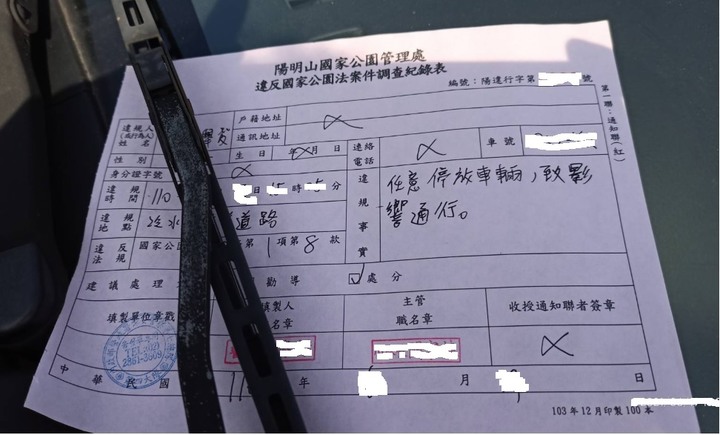 陽明山國家公園管理處
違反國家公園法案件調查紀錄表
編號：陽違行字第 號
第一聯：通知聯(紅)
違規人
(或行為人)
姓名
戶籍地址
通訊地址
性別
生日 年 月 日
連絡電話
車號
身分證字號
違規時間 110 日 15 時 5 分
違規地點 冷水 道路
違規事實
任意停放車輛，致影
響通行。
違反法規 國家公 第1項第8款
建議處理 勸導 ☑處分
填製單位章戳
填製人
職名章
主管
職名章
收授通知聯者簽章
中華民國 110 年 月 日
103年12月印製100本